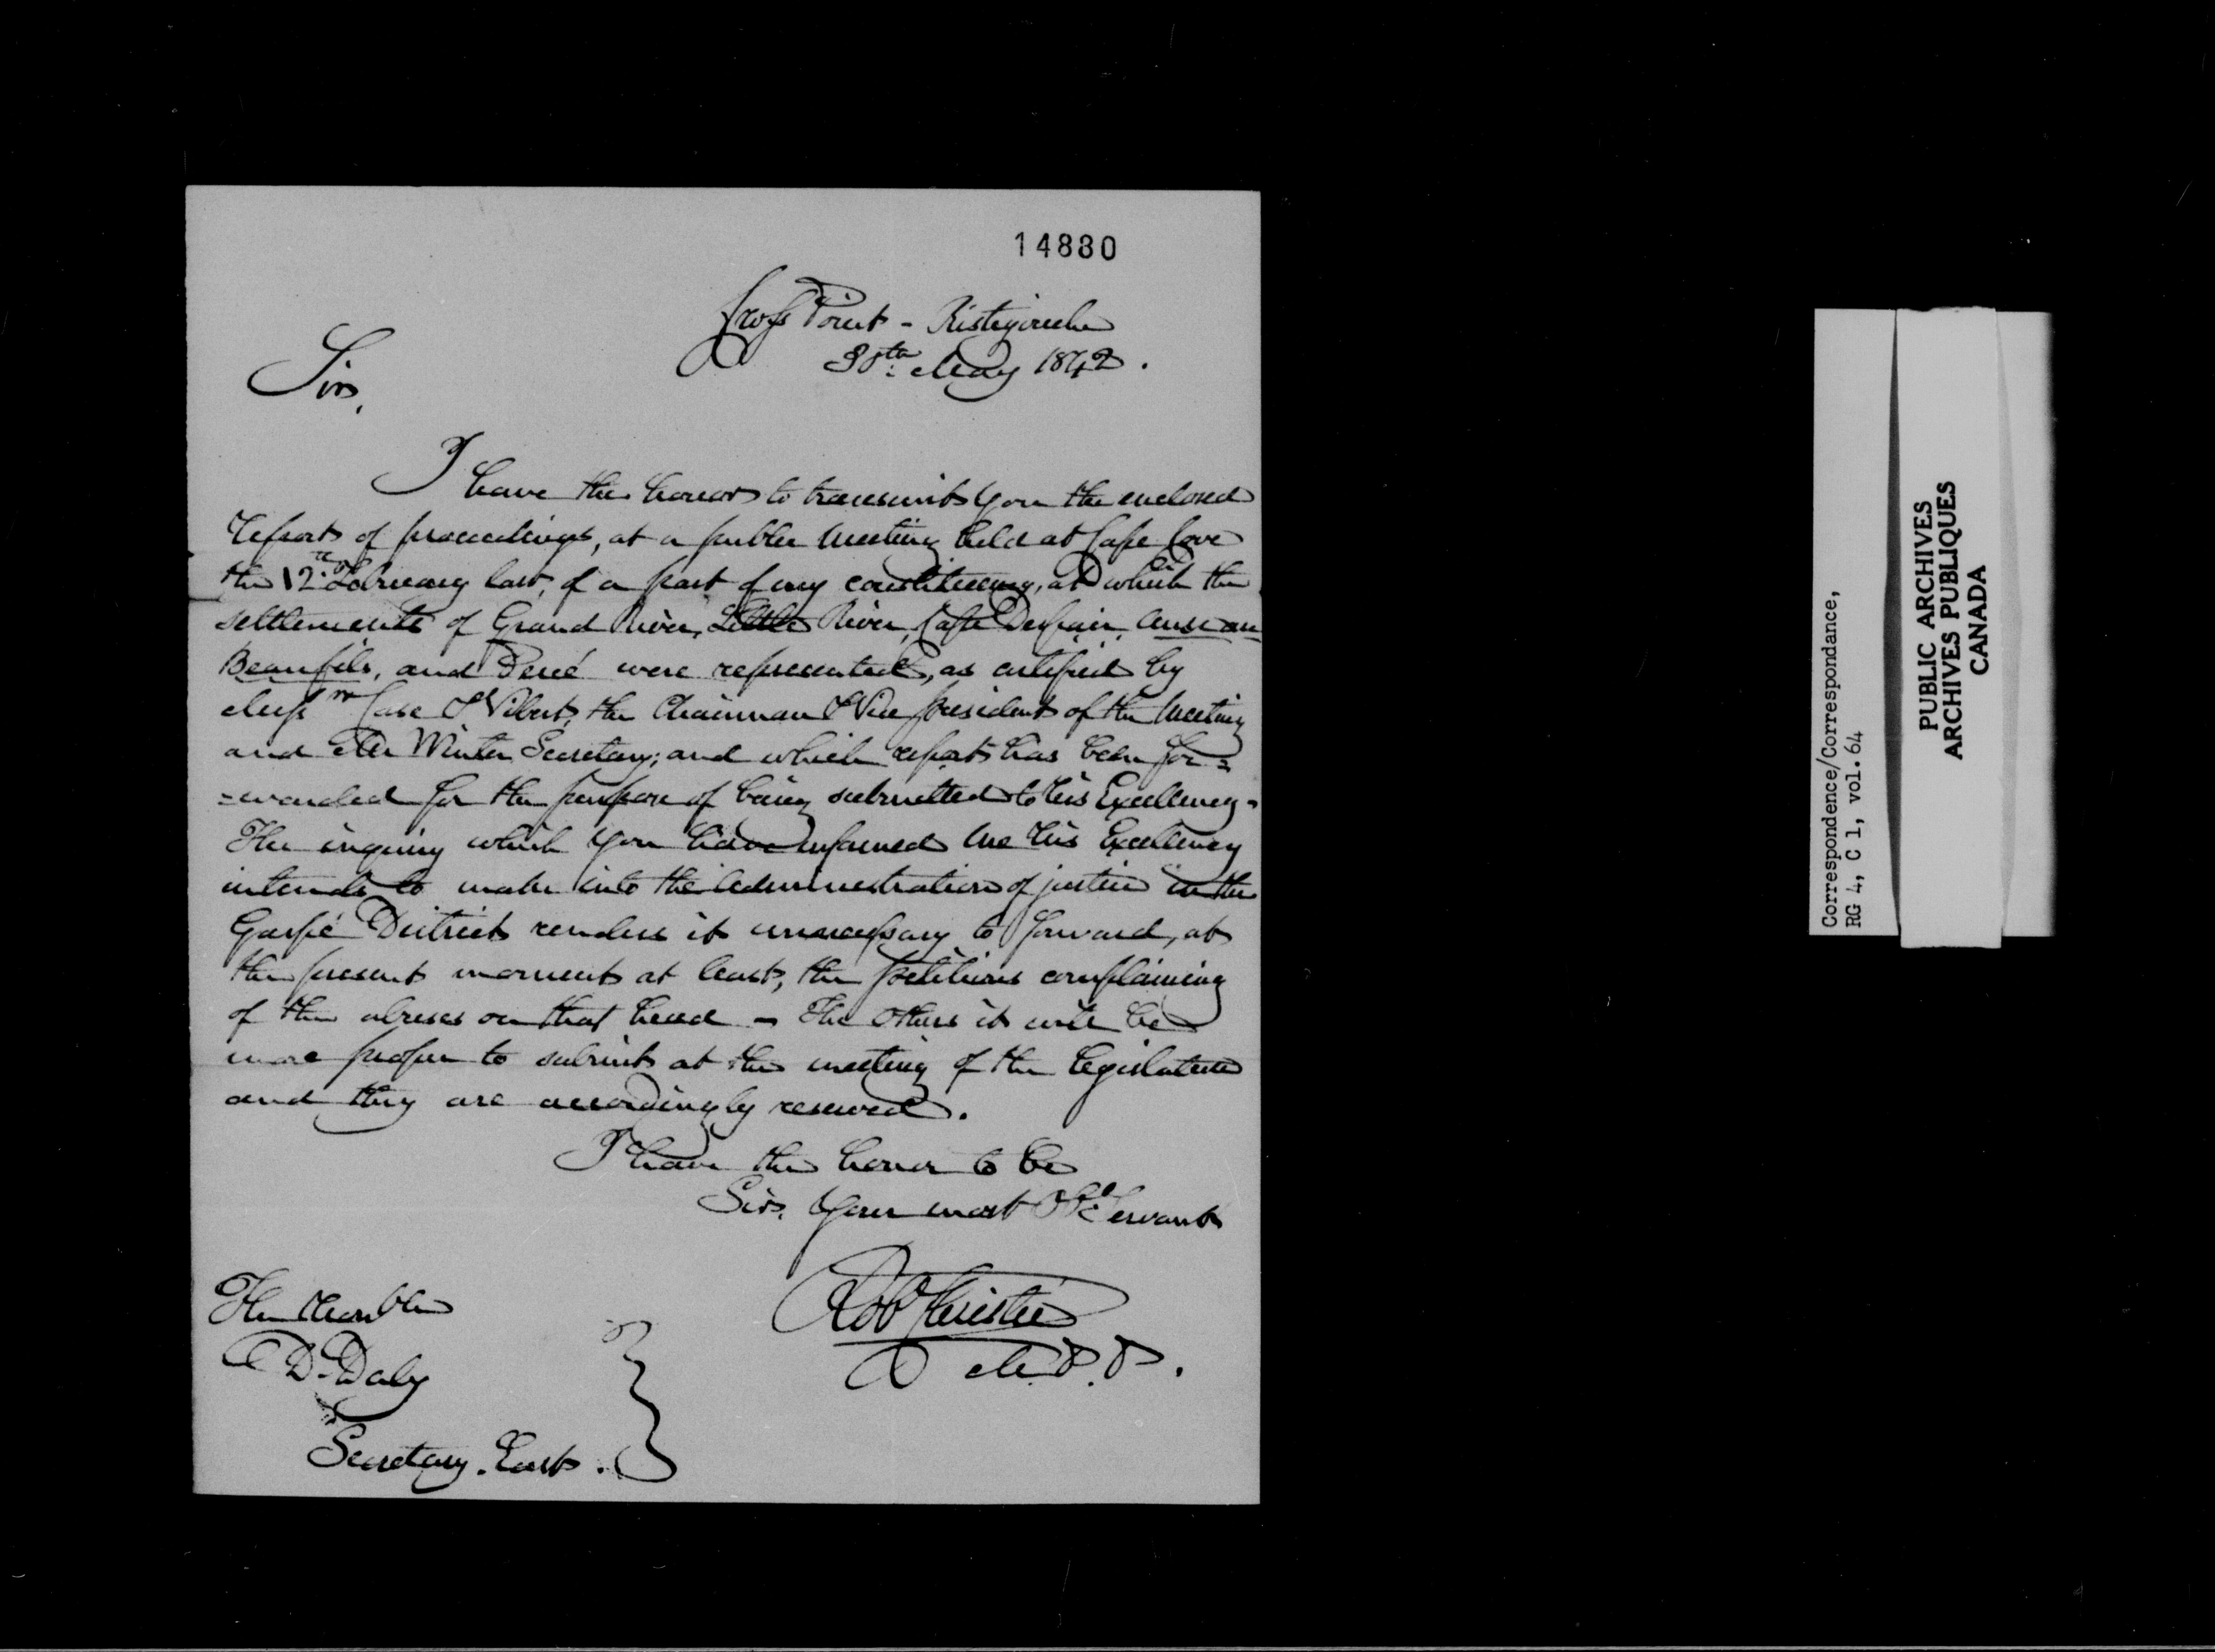 14880
Cross Point - Ristigouche
30th May 1842.
Sir,
I have the honor to transmit you the enclosed
report of proceedings, at a public meeting held at Cape Cove
the 12th February last, of a part of my constituency, at which the
settlements of Grand River, Little River, Cape Despair, Anse au
Beaufils, and Percé were represented, as certified by
Messrs Case & Vibert, the Chairman & Vice president of the Meeting
and Mr Winter Secretary; and which report has been for=
=warded for the purpose of being submitted to His Excellency.
The inquiry which you have informed me His Excellency
intends to make into the administration of justice in the
Gaspé District renders it unnecessary to forward, at
the present moment at least, the petitions complaining
of the abuses on that head - The others it will be
more proper to submit at the meeting of the Legislature
and they are accordingly reserved.
I have the honor to be
Sir, Your most Obt Servant
Robt Christie
M.P.P.
The Honble
D. Daly
Secretary. East.
Correspondence/Correspondance,
RG 4, C 1, vol. 64
PUBLIC ARCHIVES
ARCHIVES PUBLIQUES
CANADA